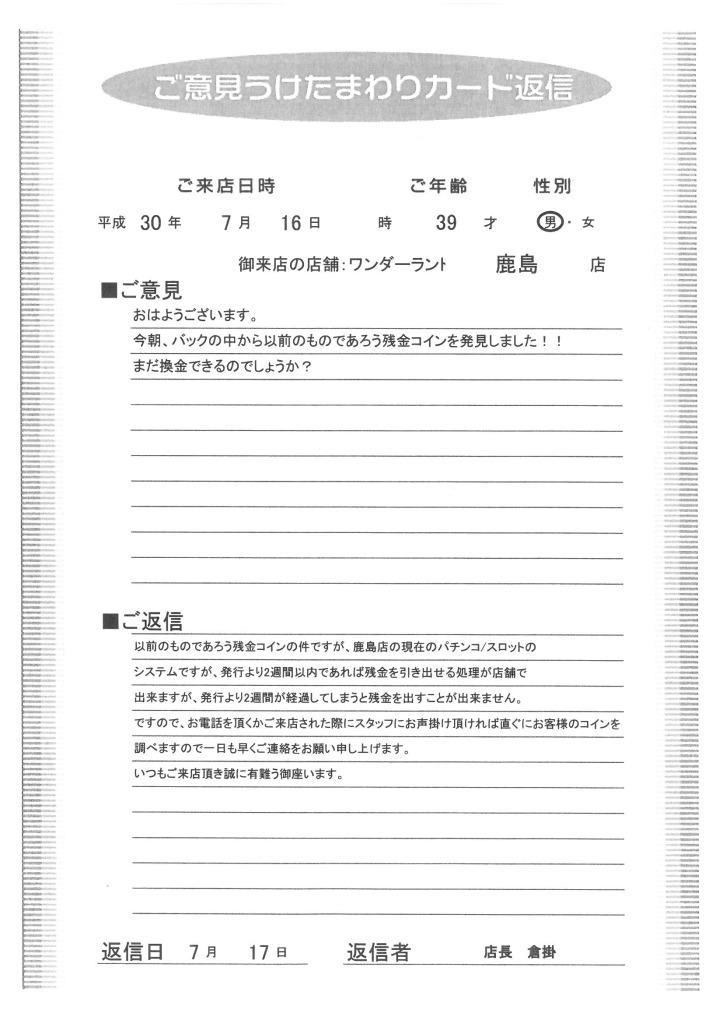 ご意見うけたまわりカード返信
ご来店日時 ご年齢 性別
平成 30 年 7 月 16 日 時 39 才 男・女
御来店の店舗：ワンダーラント 鹿島 店
■ご意見
おはようございます。
今朝、バックの中から以前のものであろう残金コインを発見しました！！
まだ換金できるのでしょうか？
■ご返信
以前のものであろう残金コインの件ですが、鹿島店の現在のパチンコ/スロットの
システムですが、発行より2週間以内であれば残金を引き出せる処理が店舗で
出来ますが、発行より2週間が経過してしまうと残金を出すことが出来ません。
ですので、お電話を頂くかご来店された際にスタッフにお声掛け頂ければ直ぐにお客様のコインを
調べますので一日も早くご連絡をお願い申し上げます。
いつもご来店頂き誠に有難う御座います。
返信日 7 月 17 日 返信者 店長 倉掛